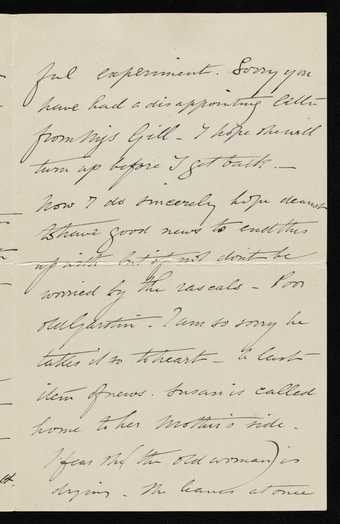 ful experiment. Sorry you
have had a disappointing letter
from Mrs Gill - I hope she will
turn up before I get back. -
Now I do sincerely hope dearest
to have good news to end this
up with but if not dont be
worried by the rascals - Poor
old Garstin - I am so sorry he
takes it so to heart - a last
item of news. Susan is called
home to her Mother's side.
I fear she (the old woman) is
dying. She leaves at once